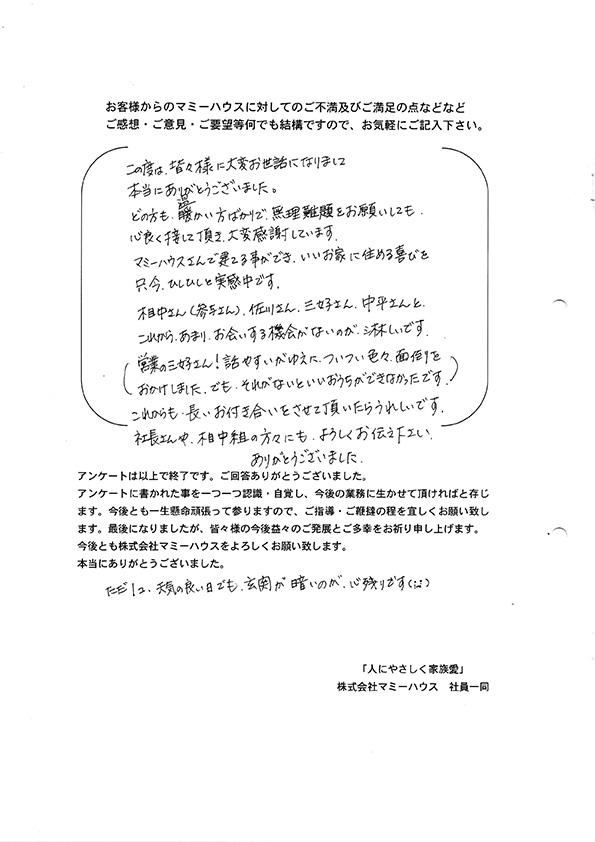 お客様からのマミーハウスに対してのご不満及びご満足の点などなど
ご感想・ご意見・ご要望等何でも結構ですので、お気軽にご記入下さい。
この度は、皆々様に大変お世話になりまして
本当にありがとうございました。
どの方も、温かい方ばかりで、無理難題をお願いしても、
心良く接して頂き、大変感謝しています。
マミーハウスさんで建てる事ができ、いいお家に住める喜びを
只今、ひしひしと実感中です。
相中さん(お兄さん)、佐川さん、三好さん、中平さんと、
これから、あまり、お会いする機会がないのが、淋しいです。
(営業の三好さん!話やすいがゆえに、ついつい色々、面倒を
おかけしました。でも、それがないといいおうちができなかったです。)
これからも、長いお付き合いをさせて頂いたらうれしいです。
社長さんや、相中組の方々にも、よろしくお伝え下さい。
ありがとうございました。
アンケートは以上で終了です。ご回答ありがとうございました。
アンケートに書かれた事を一つ一つ認識・自覚し、今後の業務に生かせて頂ければと存じ
ます。今後とも一生懸命頑張って参りますので、ご指導・ご鞭撻の程を宜しくお願い致し
ます。最後になりましたが、皆々様の今後益々のご発展とご多幸をお祈り申し上げます。
今後とも株式会社マミーハウスをよろしくお願い致します。
本当にありがとうございました。
ただ1コ、天気の良い日でも、玄関が暗いのが、心残りです
「人にやさしく家族愛」
株式会社マミーハウス 社員一同